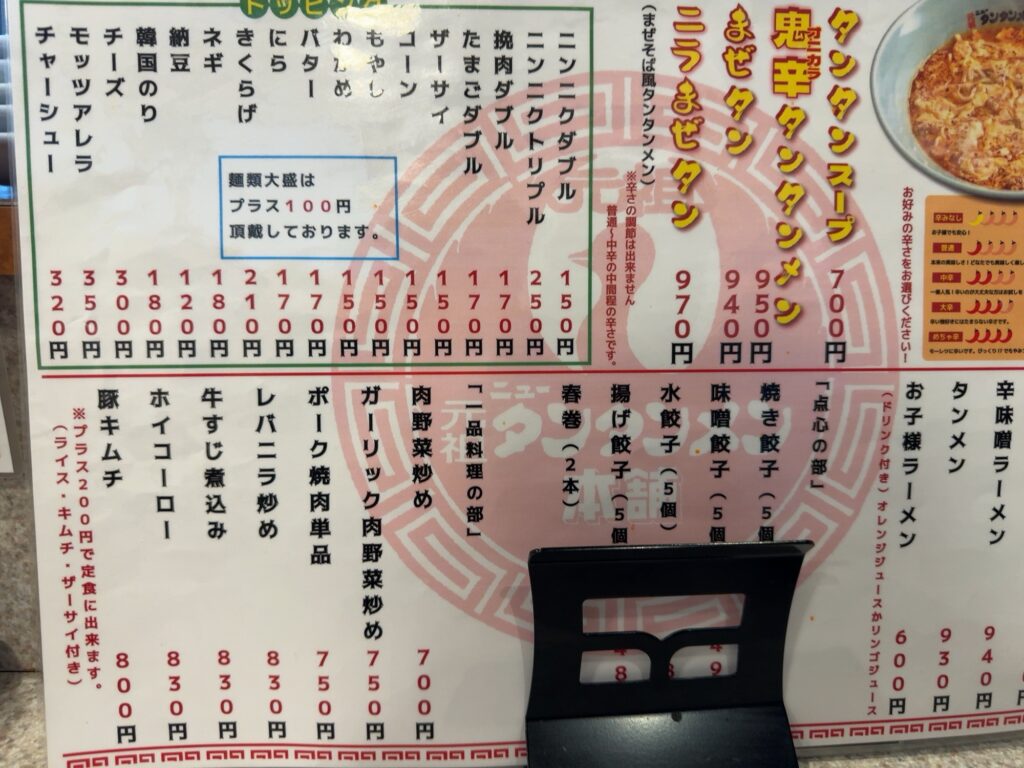 タンタンスープ 700円
鬼辛タンタンメン 950円
オニカラ
まぜタン 940円
ニラまぜタン 970円
(まぜそば風タンタンメン)
※辛さの調節は出来ません
普通〜中辛の中間程の辛さです。
お好みの辛さをお選びください!
辛みなし
お子様でも安心!
普通
中辛
大辛
めちゃ辛
トッピング
ニンニクダブル 150円
ニンニクトリプル 250円
挽肉ダブル 170円
たまごダブル 170円
ザーサイ 150円
コーン 150円
もやし 150円
わかめ 150円
バター 170円
にら 170円
きくらげ 210円
ネギ 180円
納豆 120円
韓国のり 180円
チーズ 300円
モッツアレラ 350円
チャーシュー 320円
麺類大盛は
プラス100円
頂戴しております。
辛味噌ラーメン 940円
タンメン 930円
お子様ラーメン 600円
(ドリンク付き)オレンジジュースかリンゴジュース
「点心の部」
焼き餃子(5個
味噌餃子(5個
水餃子(5個)
揚げ餃子(5個
春巻(2本)
「一品料理の部」
肉野菜炒め 700円
ガーリック肉野菜炒め 750円
ポーク焼肉単品 750円
レバニラ炒め 830円
牛すじ煮込み 830円
ホイコーロー 830円
豚キムチ 800円
※プラス200円で定食に出来ます。
(ライス・キムチ・ザーサイ付き)
元祖
ニュー
タンタンメン
本舗